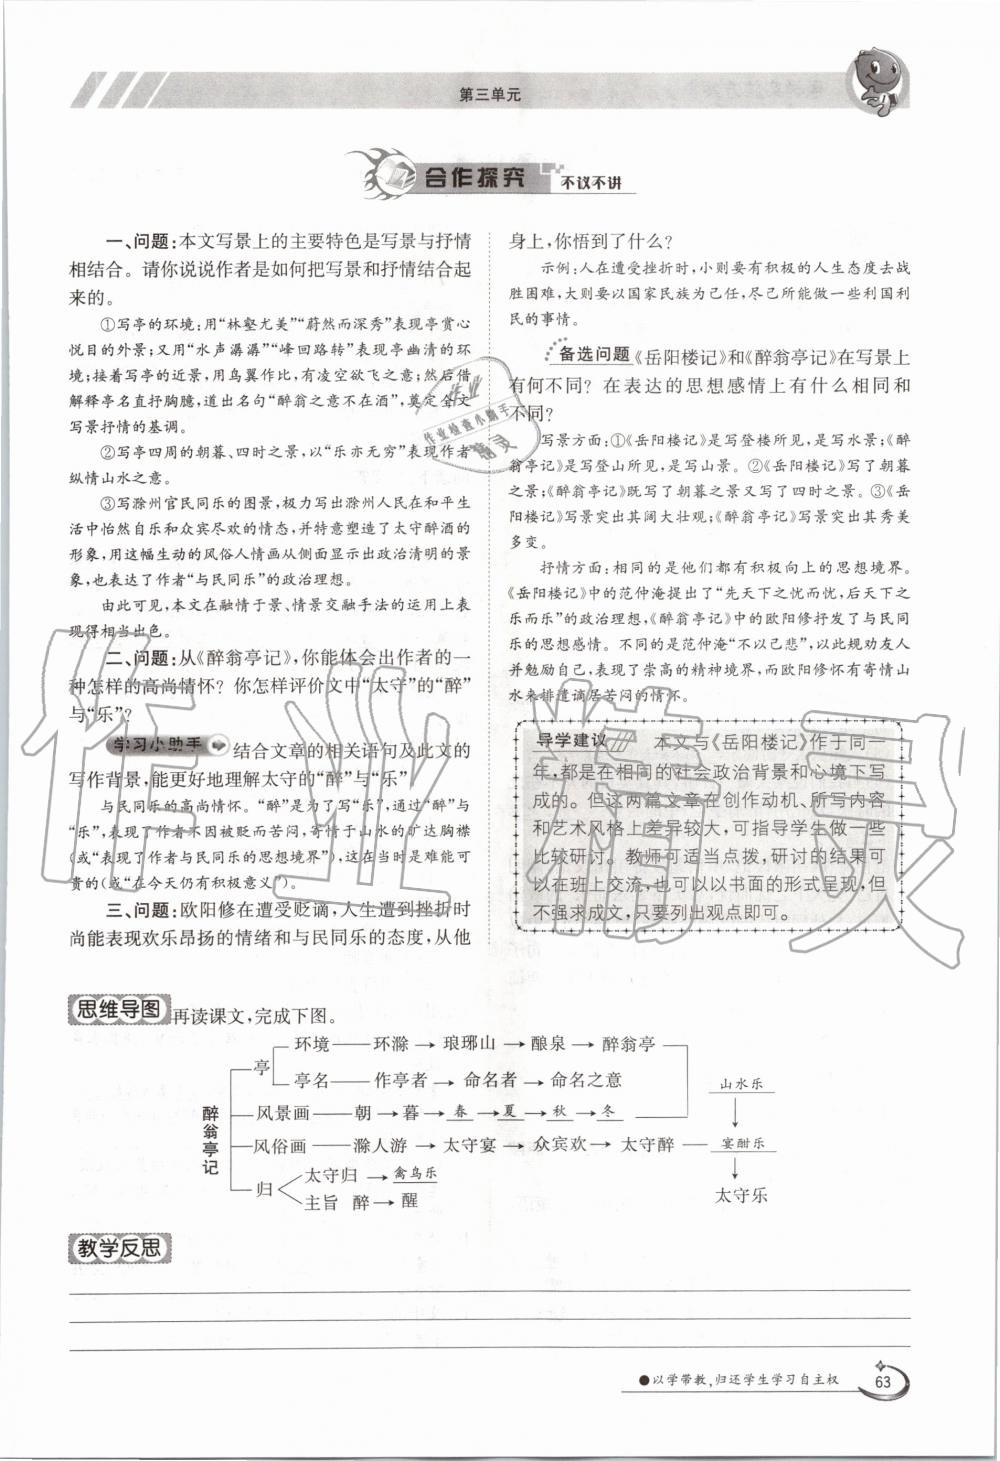 第三单元
合作探究 不议不讲
一、问题:本文写景上的主要特色是写景与抒情
相结合。请你说说作者是如何把写景和抒情结合起
来的。
①写亭的环境:用“林壑尤美”“蔚然而深秀”表现亭赏心
悦目的外景;又用“水声潺潺”“峰回路转”表现亭幽清的环
境;接着写亭的近景,用鸟翼作比,有凌空欲飞之意;然后借
解释亭名直抒胸臆,道出名句“醉翁之意不在酒”,奠定全文
写景抒情的基调。
②写亭四周的朝暮、四时之景,以“乐亦无穷”表现作者
纵情山水之意。
③写滁州官民同乐的图景,极力写出滁州人民在和平生
活中怡然自乐和众宾尽欢的情态,并特意塑造了太守醉酒的
形象,用这幅生动的风俗人情画从侧面显示出政治清明的景
象,也表达了作者“与民同乐”的政治理想。
由此可见,本文在融情于景、情景交融手法的运用上表
现得相当出色。
二、问题:从《醉翁亭记》,你能体会出作者的一
种怎样的高尚情怀?你怎样评价文中“太守”的“醉”
与“乐”?
学习小助手 结合文章的相关语句及此文的
写作背景,能更好地理解太守的“醉”与“乐”
与民同乐的高尚情怀。“醉”是为了写“乐”,通过“醉”与
“乐”,表现了作者不因被贬而苦闷,寄情于山水的旷达胸襟
(或“表现了作者与民同乐的思想境界”),这在当时是难能可
贵的(或“在今天仍有积极意义”)。
三、问题:欧阳修在遭受贬谪,人生遭到挫折时
尚能表现欢乐昂扬的情绪和与民同乐的态度,从他
身上,你悟到了什么?
示例:人在遭受挫折时,小则要有积极的人生态度去战
胜困难,大则要以国家民族为己任,尽己所能做一些利国利
民的事情。
备选问题 《岳阳楼记》和《醉翁亭记》在写景上
有何不同?在表达的思想感情上有什么相同和
不同?
写景方面:①《岳阳楼记》是写登楼所见,是写水景;《醉
翁亭记》是写登山所见,是写山景。②《岳阳楼记》写了朝暮
之景;《醉翁亭记》既写了朝暮之景又写了四时之景。③《岳
阳楼记》写景突出其阔大壮观;《醉翁亭记》写景突出其秀美
多变。
抒情方面:相同的是他们都有积极向上的思想境界。
《岳阳楼记》中的范仲淹提出了“先天下之忧而忧,后天下之
乐而乐”的政治理想,《醉翁亭记》中的欧阳修抒发了与民同
乐的思想感情。不同的是范仲淹“不以己悲”,以此规劝友人
并勉励自己,表现了崇高的精神境界,而欧阳修怀有寄情山
水来排遣谪居苦闷的情怀。
导学建议 本文与《岳阳楼记》作于同一
年,都是在相同的社会政治背景和心境下写
成的。但这两篇文章在创作动机、所写内容
和艺术风格上差异较大,可指导学生做一些
比较研讨。教师可适当点拨,研讨的结果可
以在班上交流,也可以以书面的形式呈现,但
不强求成文,只要列出观点即可。
思维导图 再读课文,完成下图。
醉翁亭记
亭
环境——环滁→琅琊山→酿泉→醉翁亭
亭名——作亭者→命名者→命名之意
风景画——朝→暮→春→夏→秋→冬
风俗画——滁人游→太守宴→众宾欢→太守醉
归
太守归→禽鸟乐
主旨 醉→醒
山水乐
宴酣乐
太守乐
教学反思
●以学带教,归还学生学习自主权
63
作业精灵
作业
作业检查小助手
精灵